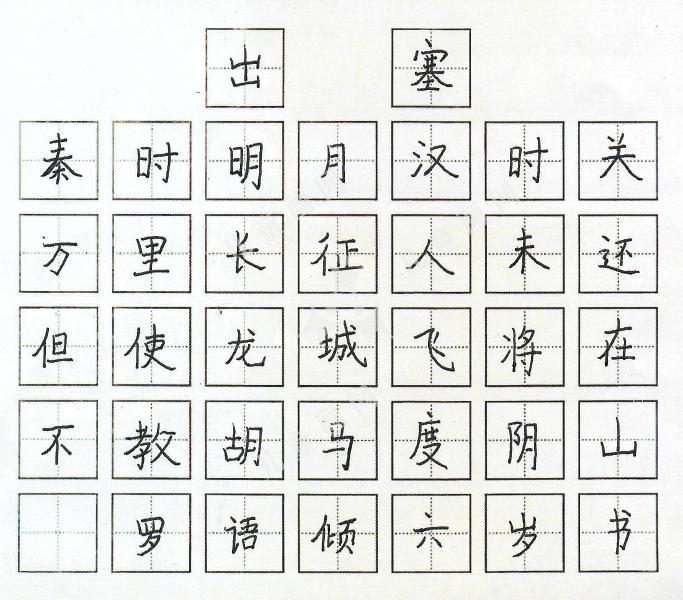 出塞
秦时明月汉时关
万里长征人未还
但使龙城飞将在
不教胡马度阴山
罗语倾六岁书